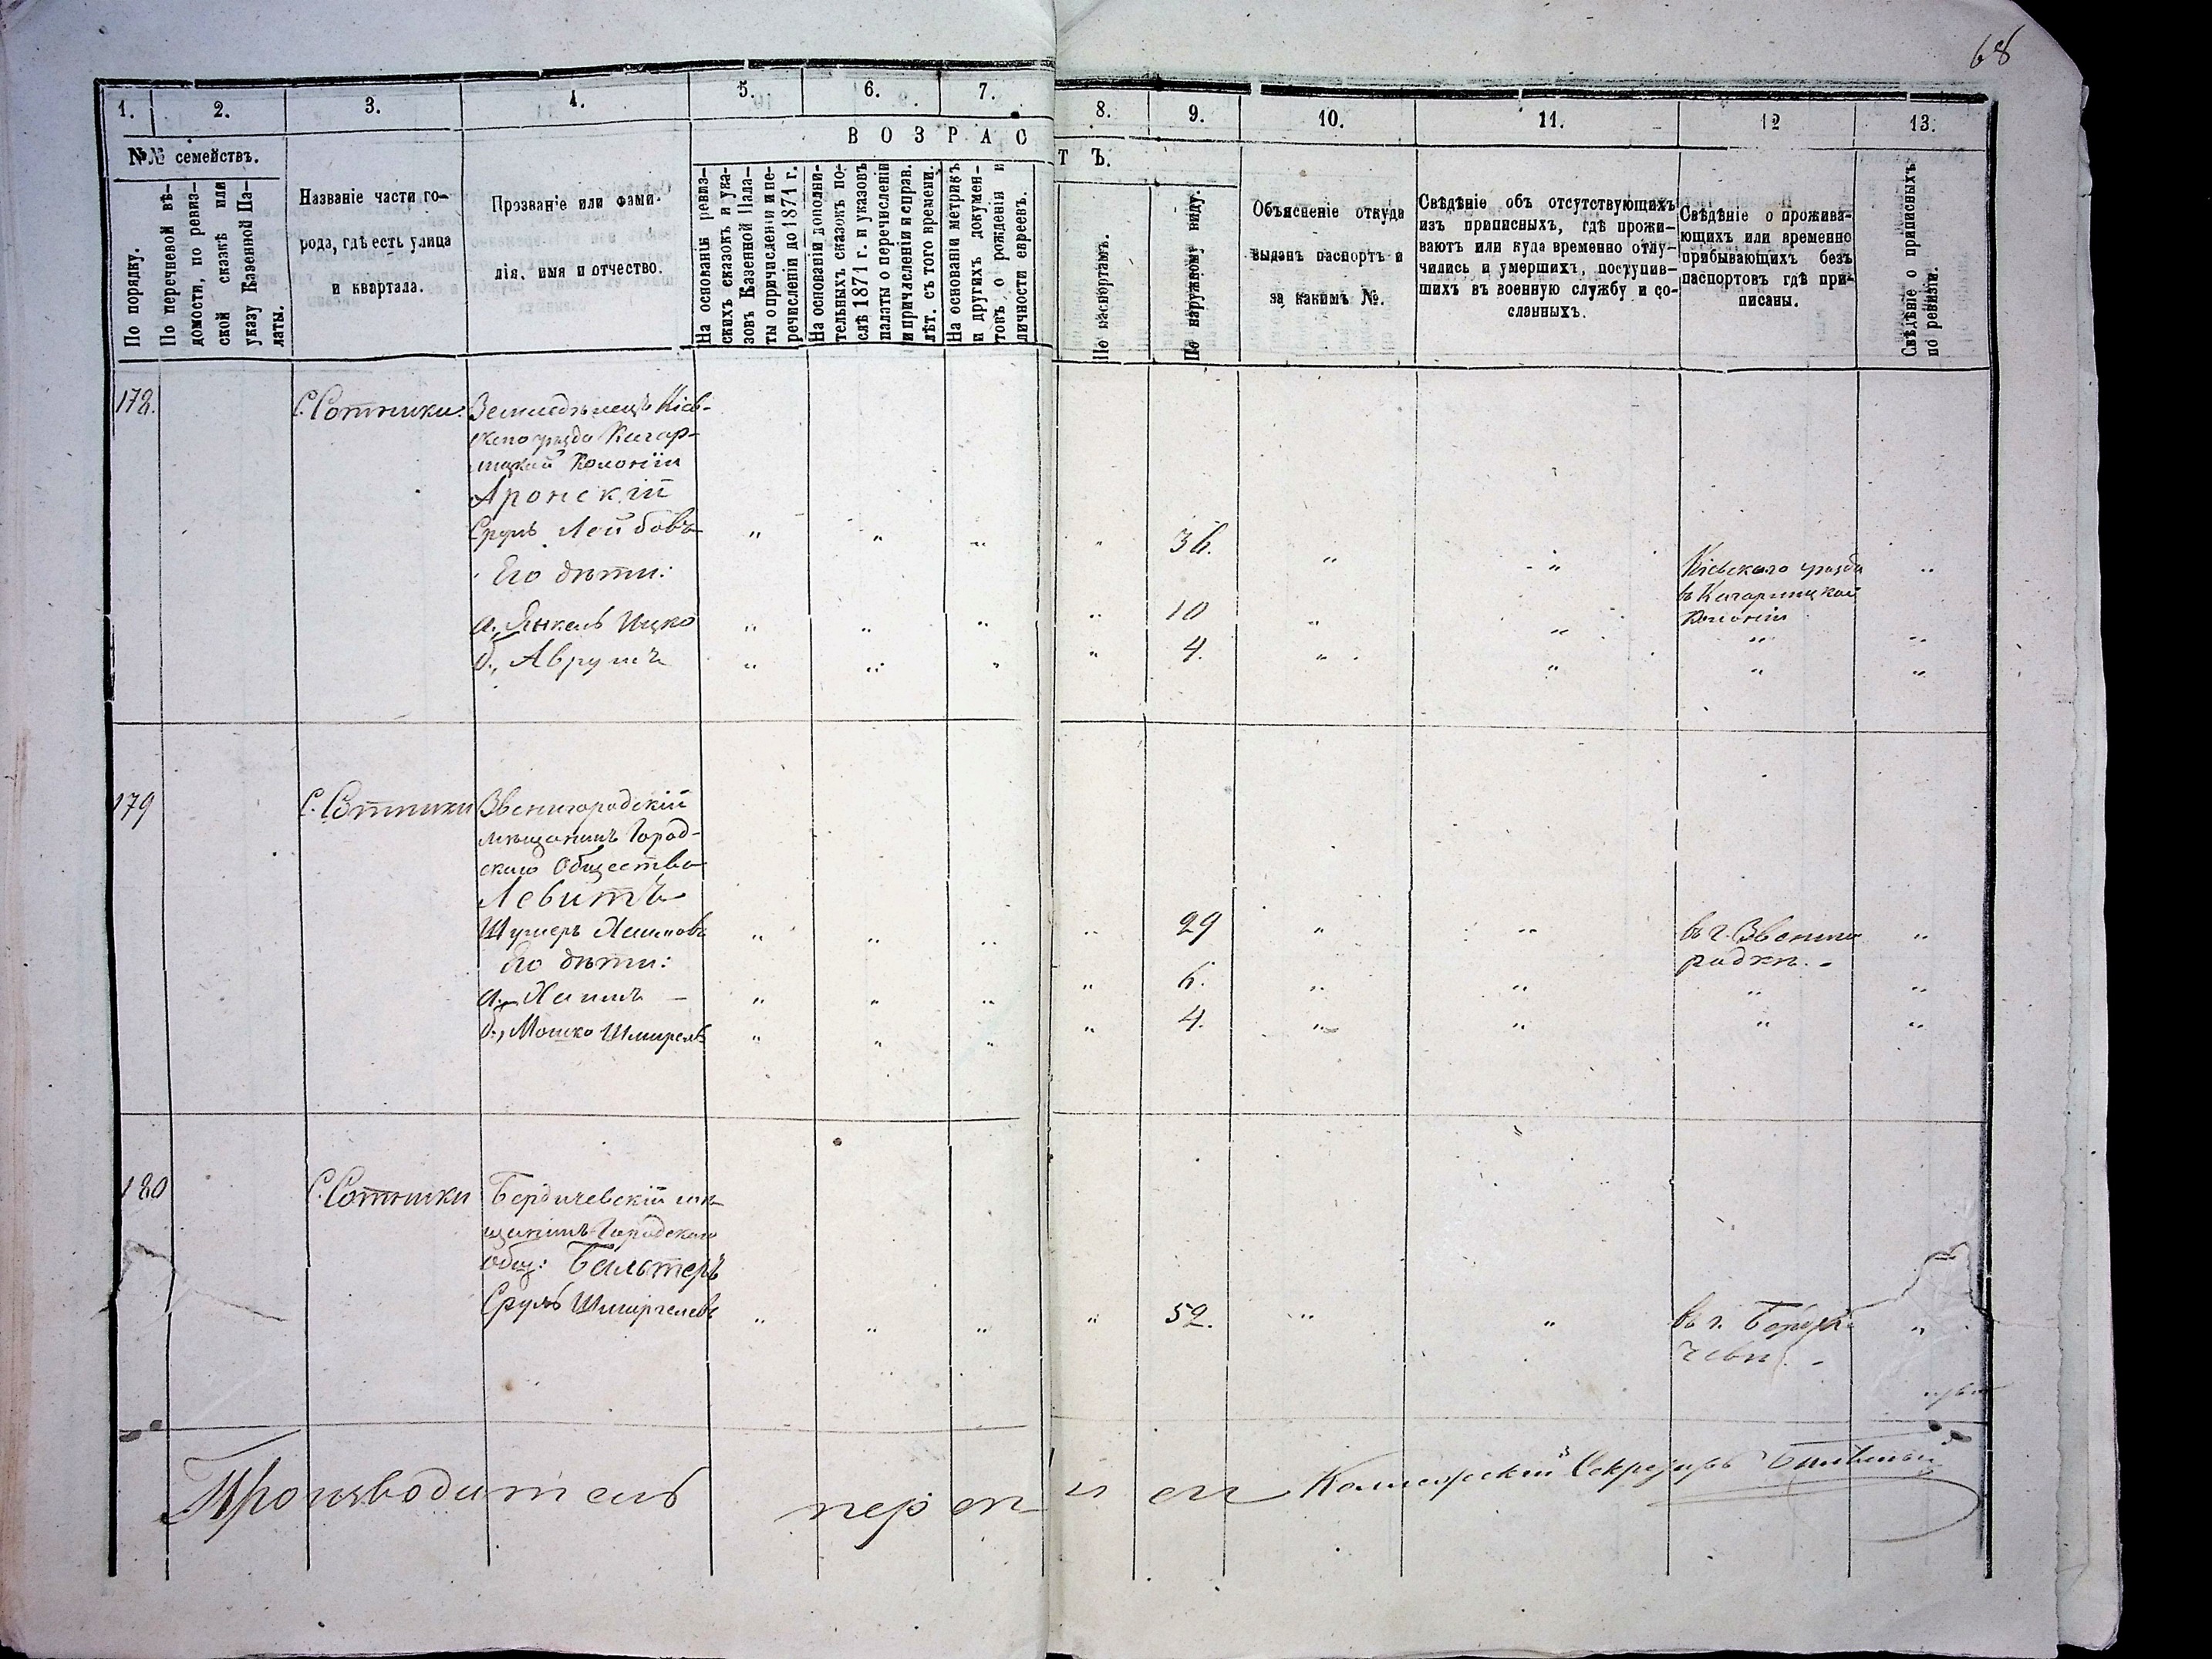 68
1. 2. 3. 4. 5. 6. 7. 8. 9. 10. 11. 12 13.
№№ семействъ.
В О З Р А С Т Ъ.
По порядку.
По перечневой вѣ-
домости, по ревиз-
ской сказкѣ или
указу Казенной Па-
латы.
Названіе части го-
рода, гдѣ есть улица
и квартала.
Прозваніе или фами-
лія, имя и отчество.
На основаніи ревиз-
скихъ сказокъ и ука-
зовъ Казенной Пала-
ты о причисленіи и пе-
речисленіи до 1871 г.
На основаніи дополни-
тельныхъ сказокъ по-
слѣ 1871 г. и указовъ
палаты о перечисленіи
и причисленіи и справ.
лѣт. съ того времени.
На основаніи метрикъ
и другихъ докумен-
товъ о рожденіи и
личности евреевъ.
По паспортамъ.
По наружному виду.
Объясненіе откуда
выданъ паспортъ и
за какимъ №.
Свѣдѣніе объ отсутствующихъ
изъ приписныхъ, гдѣ прожи-
ваютъ или куда временно отлу-
чились и умершихъ, поступив-
шихъ въ военную службу и со-
сланныхъ.
Свѣдѣніе о прожива-
ющихъ или временно
прибывающихъ безъ
паспортовъ гдѣ при-
писаны.
Свѣдѣніе о приписныхъ
по ревизіи.
178. С. Сотники. Земледѣлецъ Кіев-
скаго уѣзда Кагар-
лицкой Колоніи
Аронскій
Сруль Лейбовъ " " " " 36. " " Кіевскаго уѣзда "
Его дѣти: въ Кагарлицкой
а., Янкель Ицко " " " " 10 " " Колоніи " "
б., Аврумъ " " " " 4. " " " "
179 С. Сотники Звенигородскій
мѣщанинъ Город-
скаго Общества
Левитъ
Шмуль Хаимовъ " " " " 29 " " въ г. Звениго "
Его дѣти: родкѣ. -
а., Хаимъ - " " " " 6. " " " "
б., Мошко " " " " 4. " " " "
180 С. Сотники Бердичевскій мѣ-
щанинъ Городскаго
общ: Бальтеръ
Сруль " " " " 52. " " въ г. Берди "
чевѣ. -
Производитель переписи Коллежскій Секретарь